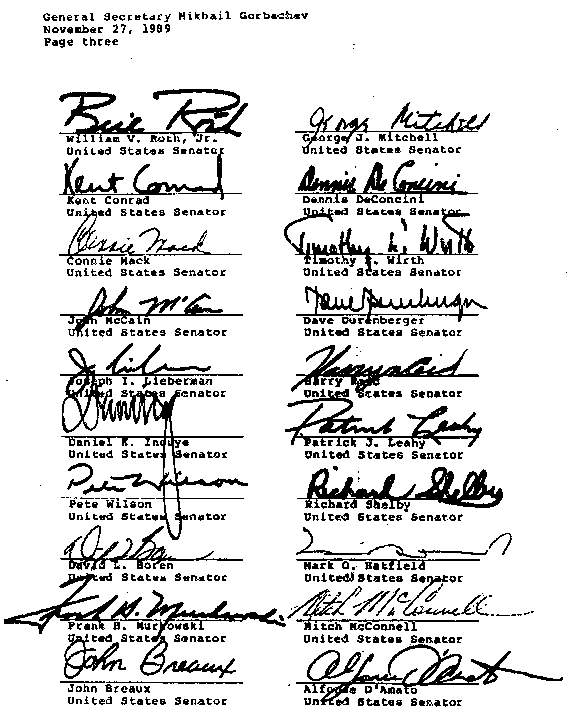 General Secretary Mikhail Gorbachev
November 27, 1989
Page three
Bill Roth
William V. Roth, Jr.
United States Senator
George Mitchell
George J. Mitchell
United States Senator
Kent Conrad
Kent Conrad
United States Senator
Dennis DeConcini
Dennis DeConcini
United States Senator
Connie Mack
Connie Mack
United States Senator
Timothy E. Wirth
Timothy E. Wirth
United States Senator
John McCain
John McCain
United States Senator
Dave Durenberger
Dave Durenberger
United States Senator
Joseph I. Lieberman
United States Senator
Harry Reid
Harry Reid
United States Senator
Daniel K. Inouye
United States Senator
Patrick Leahy
Patrick J. Leahy
United States Senator
Pete Wilson
Pete Wilson
United States Senator
Richard Shelby
Richard Shelby
United States Senator
David L. Boren
United States Senator
Mark O. Hatfield
United States Senator
Frank H. Murkowski
Frank H. Murkowski
United States Senator
Mitch McConnell
Mitch McConnell
United States Senator
John Breaux
John Breaux
United States Senator
Alfonse D'Amato
Alfonse D'Amato
United States Senator